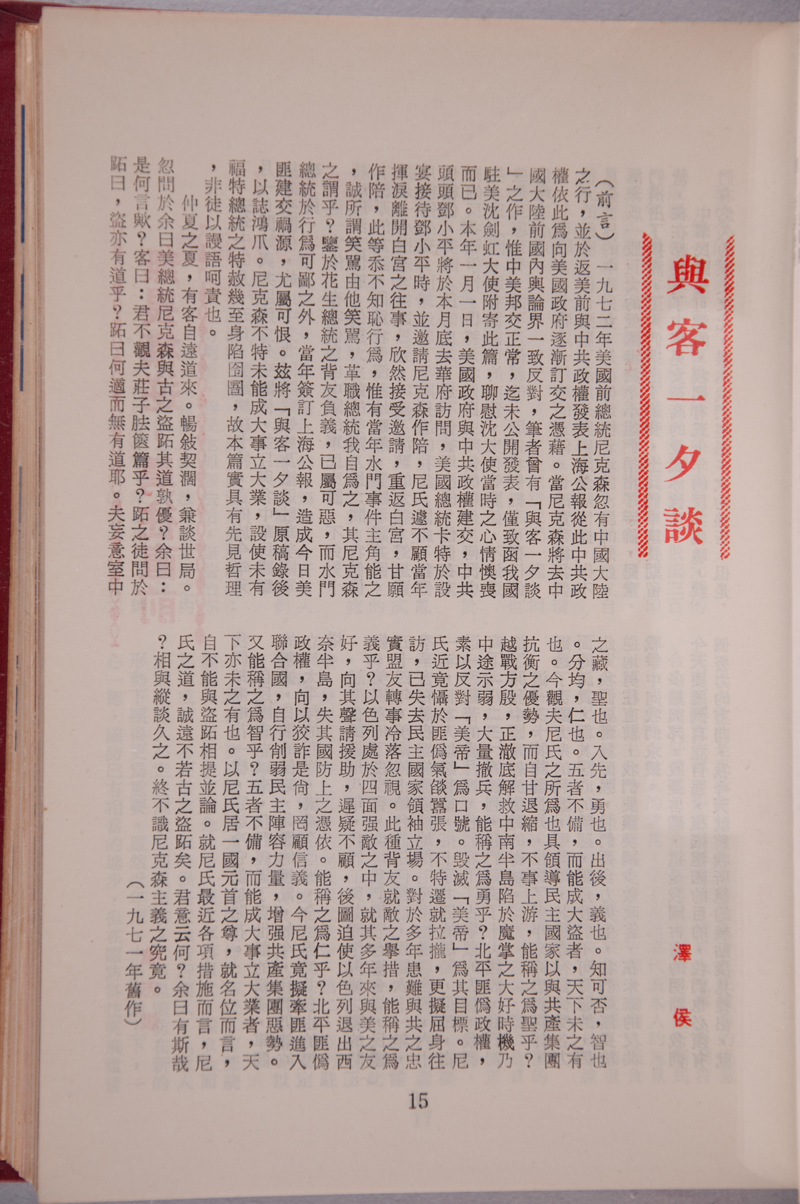 與客一夕談
澤侯
（前言）一九七二年美國前總統尼克森忽有中國大陸
之行，並於返美前與中共政權發表上海公報從此中共政
權依此爲向美國政府逐漸訂交之憑藉。當尼克森將去中
國大陸前國內輿論界一致反對，筆者曾有「與客一夕談
」之作，惟中美邦交正常，迄未公開發表，僅致函我國
駐美沈劍虹大使附寄此篇，聊慰沈大使當時之心情懊喪
而已。本年一月一日，美國政府與中共政權建交，中共
頭頭鄧小平將於本月底去華府訪問，美國總統卡特於設
宴接待鄧小平時，並邀請尼克森作陪，尼氏遽不顧當年
揮淚離開白宮之往事，欣然接受邀請，重返白宮，甘願
作陪，此等忝不知恥行爲，惟有當年水門事件主角能之
，誠所謂笑罵由他笑罵，革職總統我自爲之，其尼克森
之謂乎？鑒於花生總統之背友負義，已屬可惡，而水門
總統於行爲可鄙之外，當年簽訂上海公報，造成今日美
匪建交禍源，尤屬可恨。玆將「與客一夕談」原稿錄後
，以誌鴻爪。尼克森不特未能成大事立大業，設使未有
福特總統之特赦幾至身陷囹圄，故本篇實具有先見哲理
，非徒以謾語呵責也。
仲夏之夏，有客自遠道來。暢敍契濶，兼談世局。
忽問於余曰美總統尼克森與古之盜跖其道孰優？余曰：
是何言歟？客曰：君不觀夫莊子胠篋篇乎？跖之徒問於
跖曰，盜亦有道乎？跖曰何適而無有道耶。夫妄意室中
之藏，聖也。入先，勇也。出後，義也。知可否，智也
。分均，仁也。五者不備，而能成大盜者，天下未之有
也。今觀夫尼氏之所爲也具領導民主國家以與共產集團
抗衡之優勢，而自甘退縮，不事上游，能稱之爲聖乎？
越戰方殷，正澈底解救中南半島陷於魔掌之大好時機乃
中途示弱，大量撤兵，能稱之爲勇乎？北平匪僞政權，
素以反對「美帝」爲口號。毀滅「美帝」爲其目標。尼
氏近竟懾於匪僞氣燄囂張，不特遷就拉攏，更擬屈身往
訪，已失去民主國家領袖立場。對於多年患難與共之忠
實盟友轉事冷落忽視。此種背友就敵之擧措，能稱之爲
義乎？以色列處於四面强敵之中，就其多年來與美之友
好，向其聲請援助，遲疑不顧，後圖迫使以色列退出西
奈半島，失其國防上之憑依。能稱之爲仁乎？北平匪僞
政權，向以狡詐是尙，罔顧信義。今尼氏竟擬牽匪進入
聯合國，自行削弱民主陣容力量，增强共產集團惡勢。
又能稱之爲智乎？五者不備，而能成大事立大業者，天
下亦未之有也。以尼氏居一國元首之尊，就名位而言，
自不能與盜跖相提並論。就尼氏最近各項措施而言，尼
氏之道，誠遠不若古之盜跖矣。君意云何？余曰有斯哉
？相與縱談久之。終不識尼克森主義之究竟。
（一九七一年舊作）
15